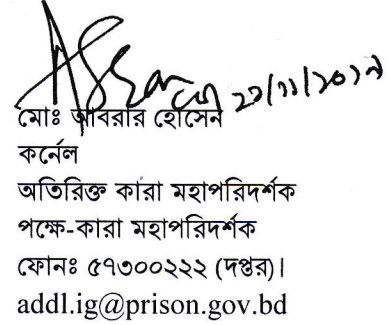 ২১/১১/২০১৯
মোঃ আবরার হোসেন
কর্নেল
অতিরিক্ত কারা মহাপরিদর্শক
পক্ষে-কারা মহাপরিদর্শক
ফোনঃ ৫৭৩০০২২২ (দপ্তর)।
addl.ig@prison.gov.bd